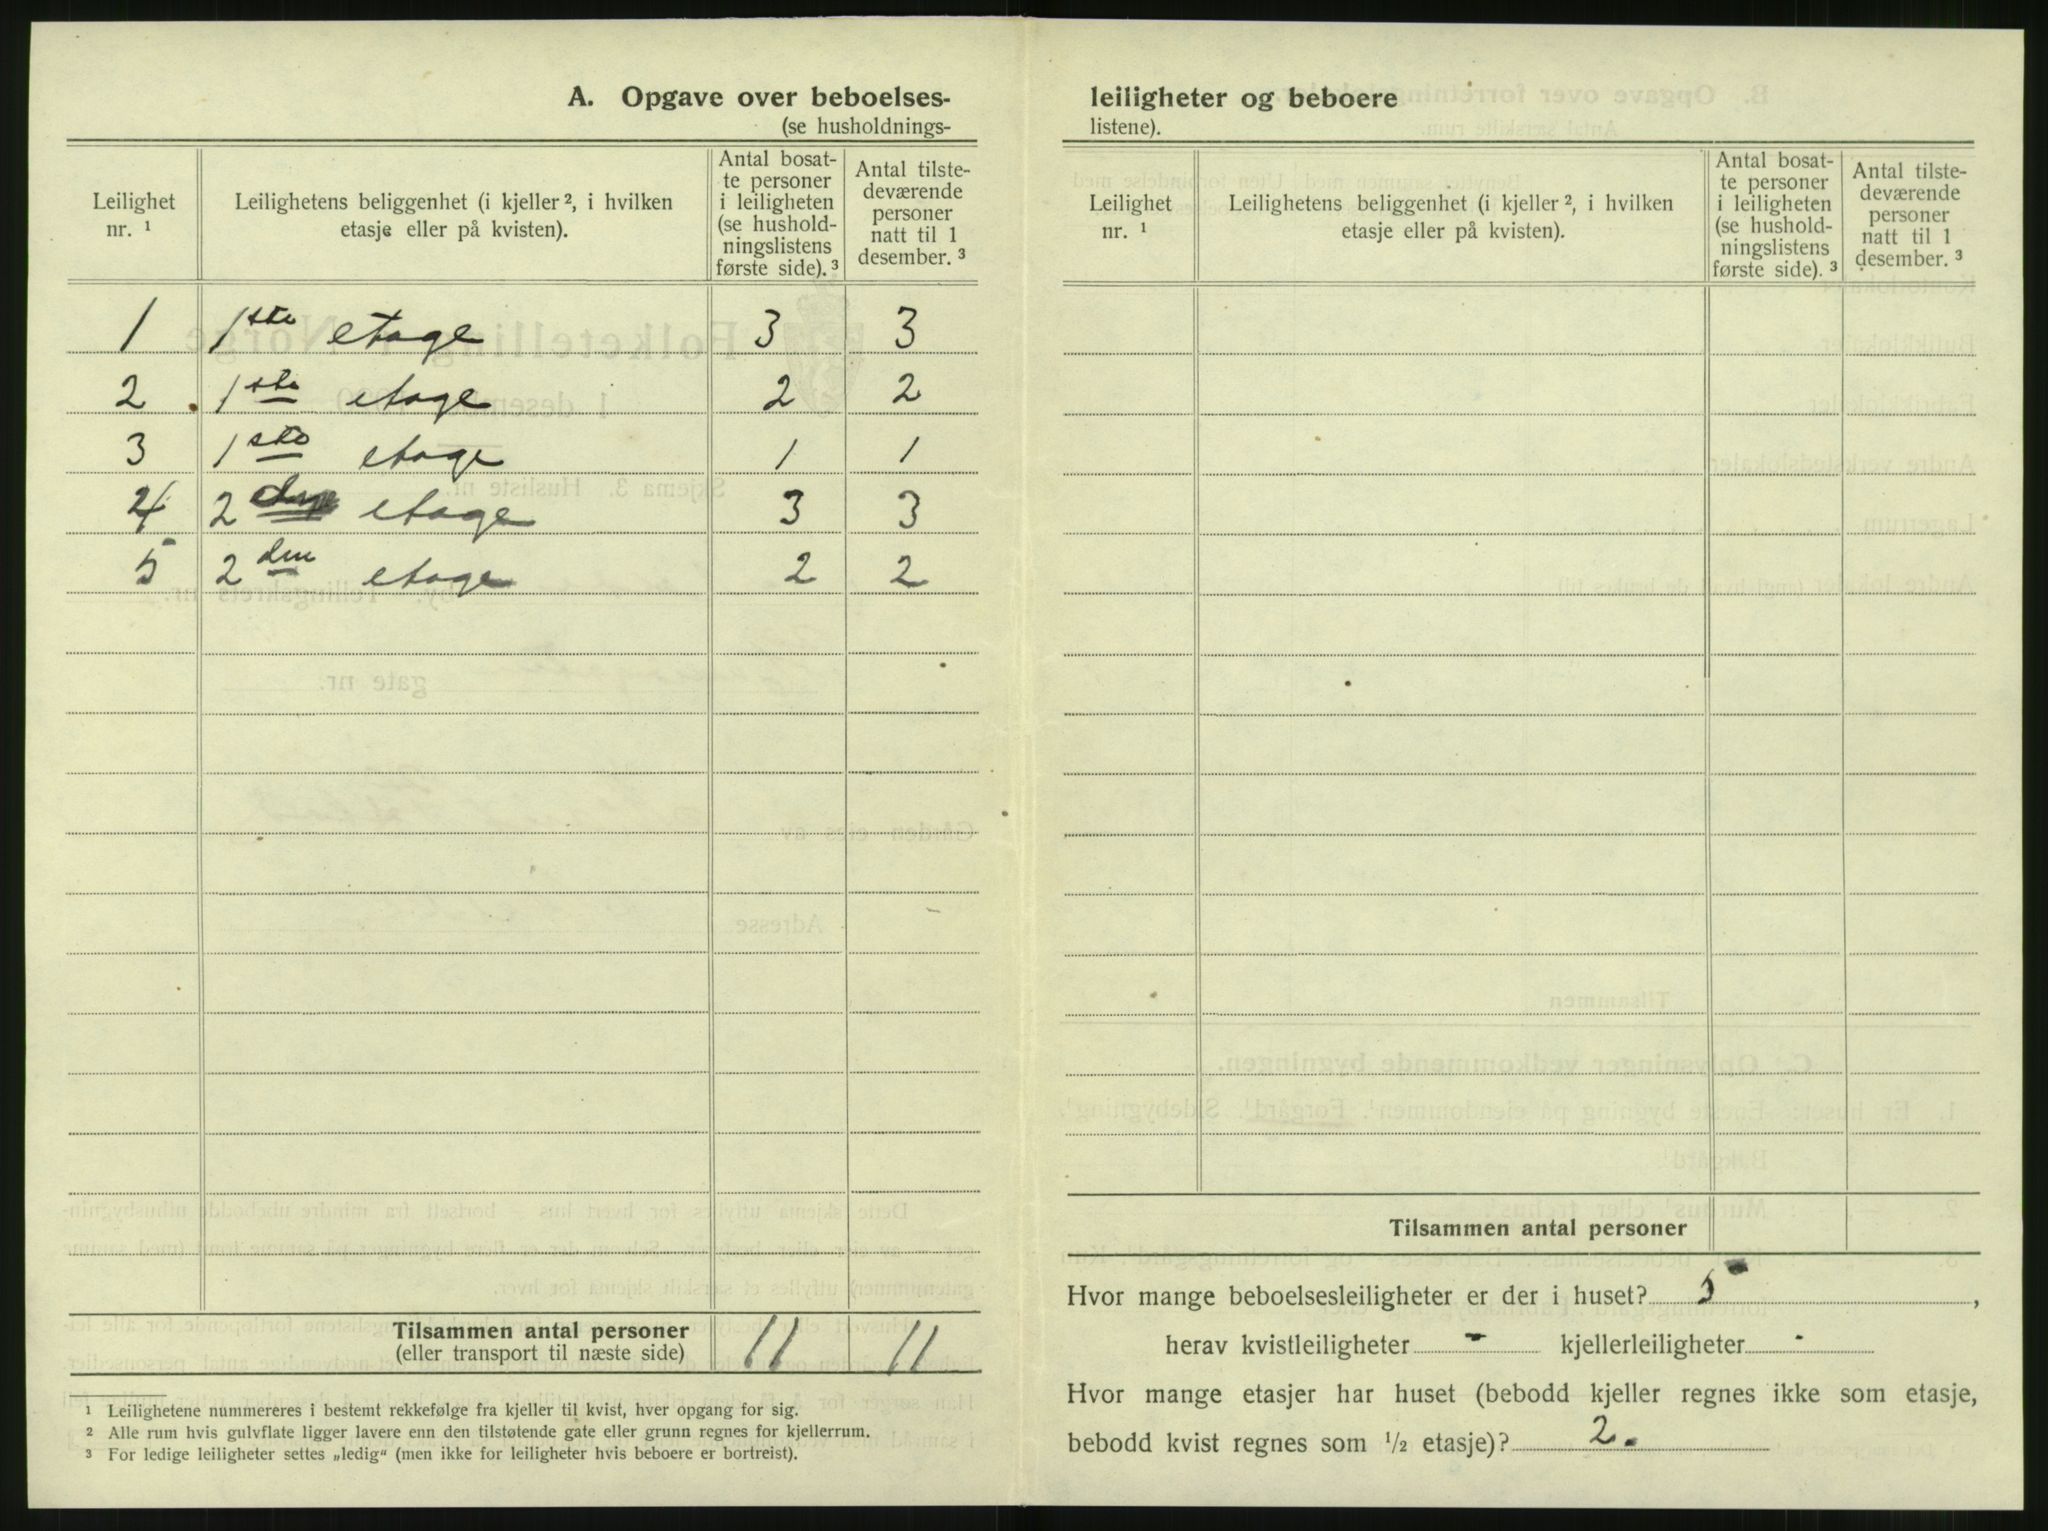 A. Opgave over beboelses-
(se husholdnings-
Leilighet nr. ¹
Leilighetens beliggenhet (i kjeller ², i hvilken etasje eller på kvisten).
Antal bosat-
te personer
i leiligheten
(se hushold-
ningslistens
første side). ³
Antal tilste-
deværende
personer
natt til 1
desember. ³
1 1ste etage 3 3
2 1ste etage 2 2
3 1ste etage 1 1
4 2 etage 3 3
5 2den etage 2 2
Tilsammen antal personer 11 11
(eller transport til næste side)
¹ Leilighetene nummereres i bestemt rekkefølge fra kjeller til kvist, hver opgang for sig.
² Alle rum hvis gulvflate ligger lavere enn den tilstøtende gate eller grunn regnes for kjellerrum.
³ For ledige leiligheter settes „ledig“ (men ikke for leiligheter hvis beboere er bortreist).
leiligheter og beboere
listene).
Leilighet nr. ¹
Leilighetens beliggenhet (i kjeller ², i hvilken etasje eller på kvisten).
Antal bosat-
te personer
i leiligheten
(se hushold-
ningslistens
første side). ³
Antal tilste-
deværende
personer
natt til 1
desember. ³
Tilsammen antal personer
Hvor mange beboelsesleiligheter er der i huset? 5,
herav kvistleiligheter - kjellerleiligheter -
Hvor mange etasjer har huset (bebodd kjeller regnes ikke som etasje,
bebodd kvist regnes som ½ etasje)? 2.